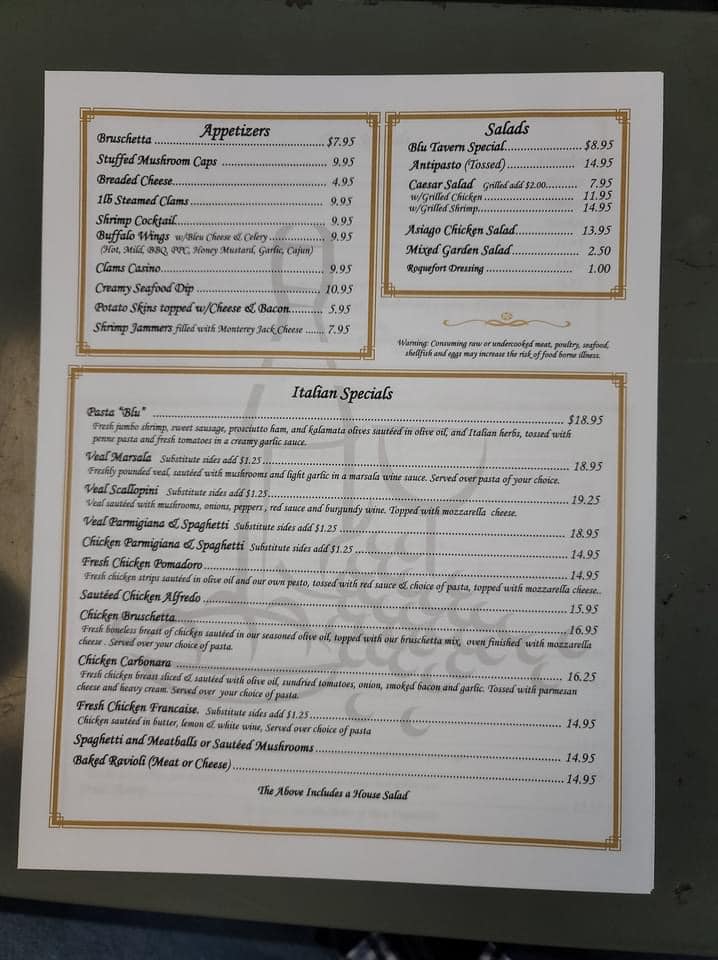 Appetizers
Bruschetta ........ $7.95
Stuffed Mushroom Caps ........ 9.95
Breaded Cheese........ 4.95
1lb Steamed Clams........ 9.95
Shrimp Cocktail........ 9.95
Buffalo Wings w/Bleu Cheese & Celery........ 9.95
(Hot, Mild, BBQ, PPC, Honey Mustard, Garlic, Cajun)
Clams Casino........ 9.95
Creamy Seafood Dip ........ 10.95
Potato Skins topped w/Cheese & Bacon........ 5.95
Shrimp Jammers filled with Monterey Jack Cheese ....... 7.95
Salads
Blu Tavern Special........ $8.95
Antipasto (Tossed)........ 14.95
Caesar Salad Grilled add $2.00........ 7.95
w/Grilled Chicken ........ 11.95
w/Grilled Shrimp........ 14.95
Asiago Chicken Salad........ 13.95
Mixed Garden Salad........ 2.50
Roquefort Dressing ........ 1.00
Warning: Consuming raw or undercooked meat, poultry, seafood,
shellfish and eggs may increase the risk of food borne illness.
Italian Specials
Pasta "Blu" ........ $18.95
Fresh jumbo shrimp, sweet sausage, prosciutto ham, and kalamata olives sautéed in olive oil, and Italian herbs, tossed with
penne pasta and fresh tomatoes in a creamy garlic sauce.
Veal Marsala Substitute sides add $1.25........ 18.95
Freshly pounded veal, sautéed with mushrooms and light garlic in a marsala wine sauce. Served over pasta of your choice.
Veal Scallopini Substitute sides add $1.25........ 19.25
Veal sautéed with mushrooms, onions, peppers , red sauce and burgundy wine. Topped with mozzarella cheese.
Veal Parmigiana & Spaghetti Substitute sides add $1.25 ........ 18.95
Chicken Parmigiana & Spaghetti Substitute sides add $1.25 ........ 14.95
Fresh Chicken Pomadoro ........ 14.95
Fresh chicken strips sautéed in olive oil and our own pesto, tossed with red sauce & choice of pasta, topped with mozzarella cheese..
Sautéed Chicken Alfredo ........ 15.95
Chicken Bruschetta........ 16.95
Fresh boneless breast of chicken sautéed in our seasoned olive oil, topped with our bruschetta mix, oven finished with mozzarella
cheese . Served over your choice of pasta.
Chicken Carbonara ........ 16.25
Fresh chicken breast sliced & sautéed with olive oil, sundried tomatoes, onion, smoked bacon and garlic. Tossed with parmesan
cheese and heavy cream. Served over your choice of pasta.
Fresh Chicken Francaise. Substitute sides add $1.25........ 14.95
Chicken sautéed in butter, lemon & white wine, Served over choice of pasta
Spaghetti and Meatballs or Sautéed Mushrooms ........ 14.95
Baked Ravioli (Meat or Cheese)........ 14.95
The Above Includes a House Salad